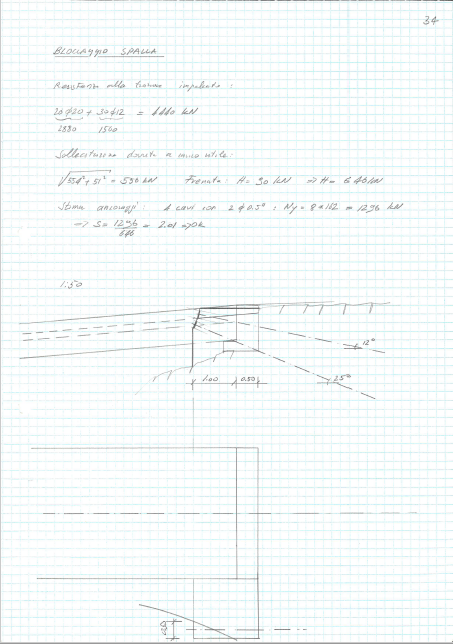 34
BLOCCAGGIO SPALLA
Resistenza alla trazione impalcato:
20ϕ20 + 30ϕ12 = 4440 kN
2880 1560
Sollecitazione dovuta a carico utile:
= 590 kN Frenata: H = 90 kN ⇒ H = 646 kN
Stima ancoraggi: 4 cavi con 2 ϕ 0.5" : Ny = 8 * 162 = 1296 kN
⇒ S = 1296/646 = 2.01 ⇒ OK
1:50
12°
25°
1.00 0.50